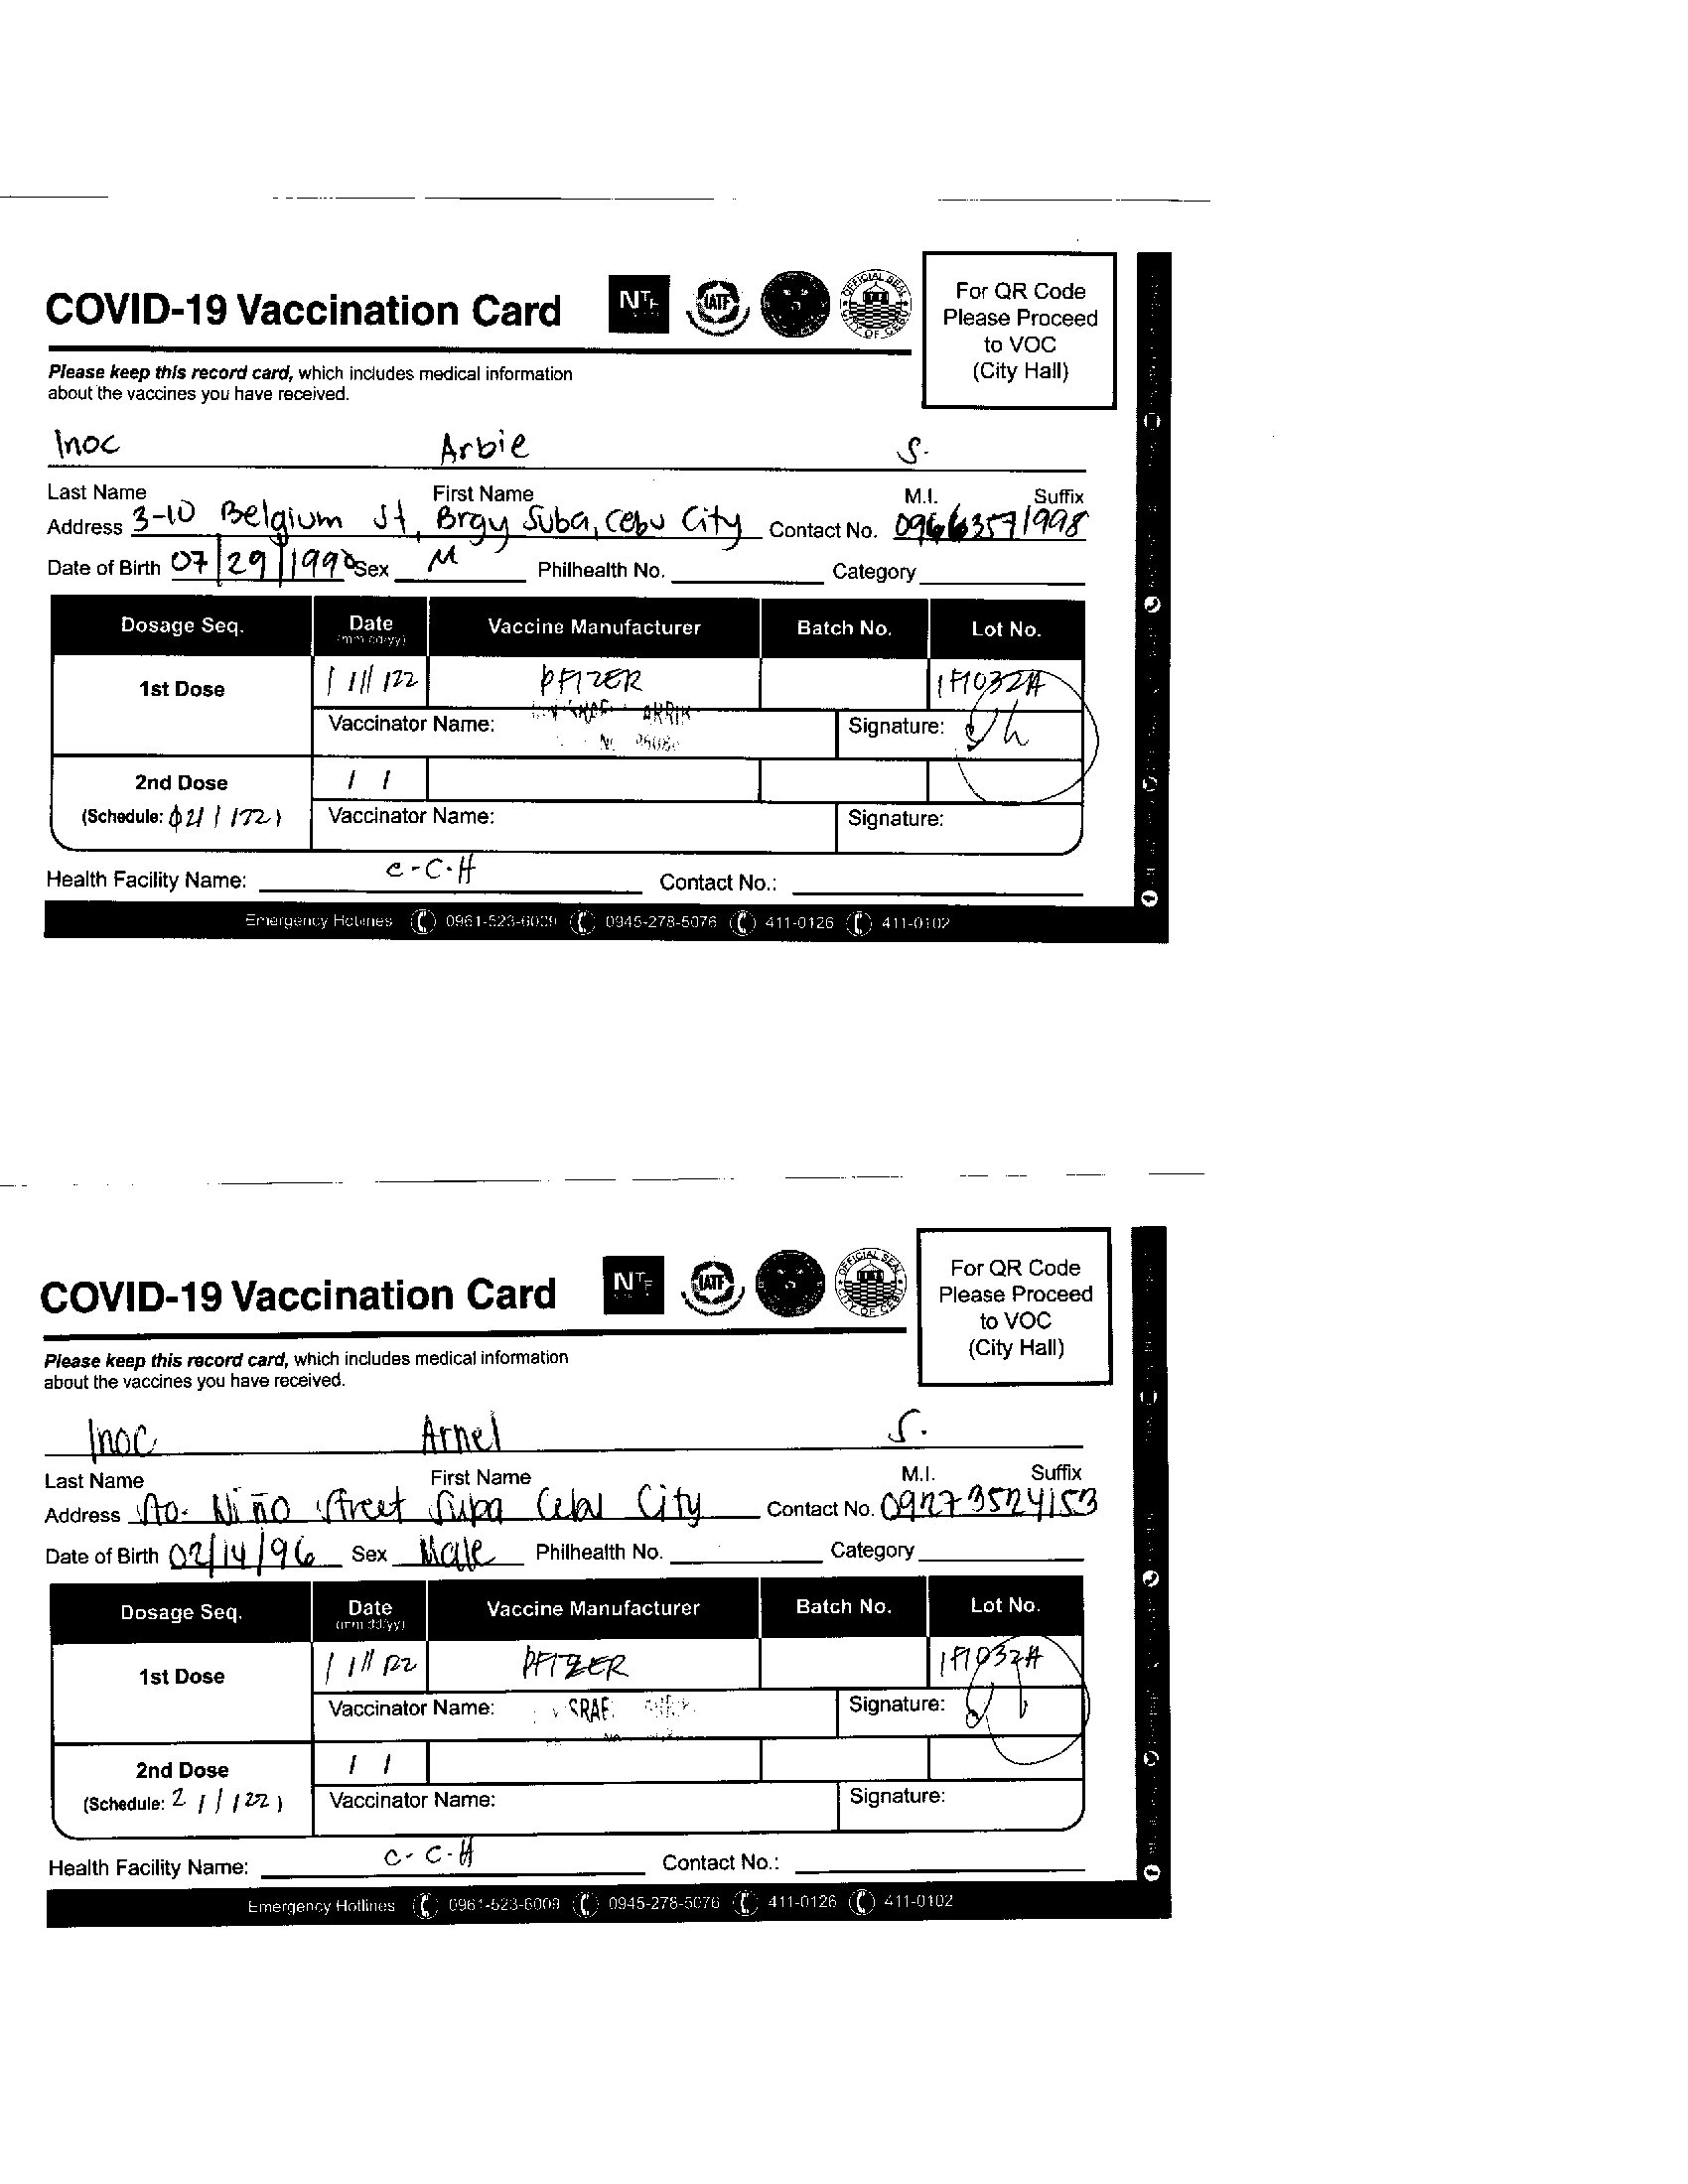 COVID-19 Vaccination Card
NTF
IATF
OFFICIAL SEAL
CITY OF CEBU
For QR Code
Please Proceed
to VOC
(City Hall)
Please keep this record card, which includes medical information
about the vaccines you have received.
Inoc Arbie S.
Last Name First Name M.I. Suffix
Address 3-10 Belgium St, Brgy Suba, Cebu City Contact No. 09663571998
Date of Birth 07/29/ Sex M Philhealth No. Category
Dosage Seq. Date Vaccine Manufacturer Batch No. Lot No.
(mm/dd/yy)
1st Dose 1/11/22 PFIZER 1F1032A
Vaccinator Name: Signature:
2nd Dose / /
(Schedule: Vaccinator Name: Signature:
Health Facility Name: C-C-H Contact No.:
Emergency Hotlines 0961-523-6009 0945-278-5076 411-0126 411-0102
COVID-19 Vaccination Card
NTF
IATF
OFFICIAL SEAL
CITY OF CEBU
For QR Code
Please Proceed
to VOC
(City Hall)
Please keep this record card, which includes medical information
about the vaccines you have received.
Inoc Arnel S.
Last Name First Name M.I. Suffix
Address Sto. Niño Street Suba Cebu City Contact No. 09273524153
Date of Birth 02/14/96 Sex Male Philhealth No. Category
Dosage Seq. Date Vaccine Manufacturer Batch No. Lot No.
(mm/dd/yy)
1st Dose 1/11/22 PFIZER 1F1032A
Vaccinator Name: Signature:
2nd Dose / /
(Schedule: 2/1/22) Vaccinator Name: Signature:
Health Facility Name: C-C-H Contact No.:
Emergency Hotlines 0961-523-6009 0945-278-5076 411-0126 411-0102